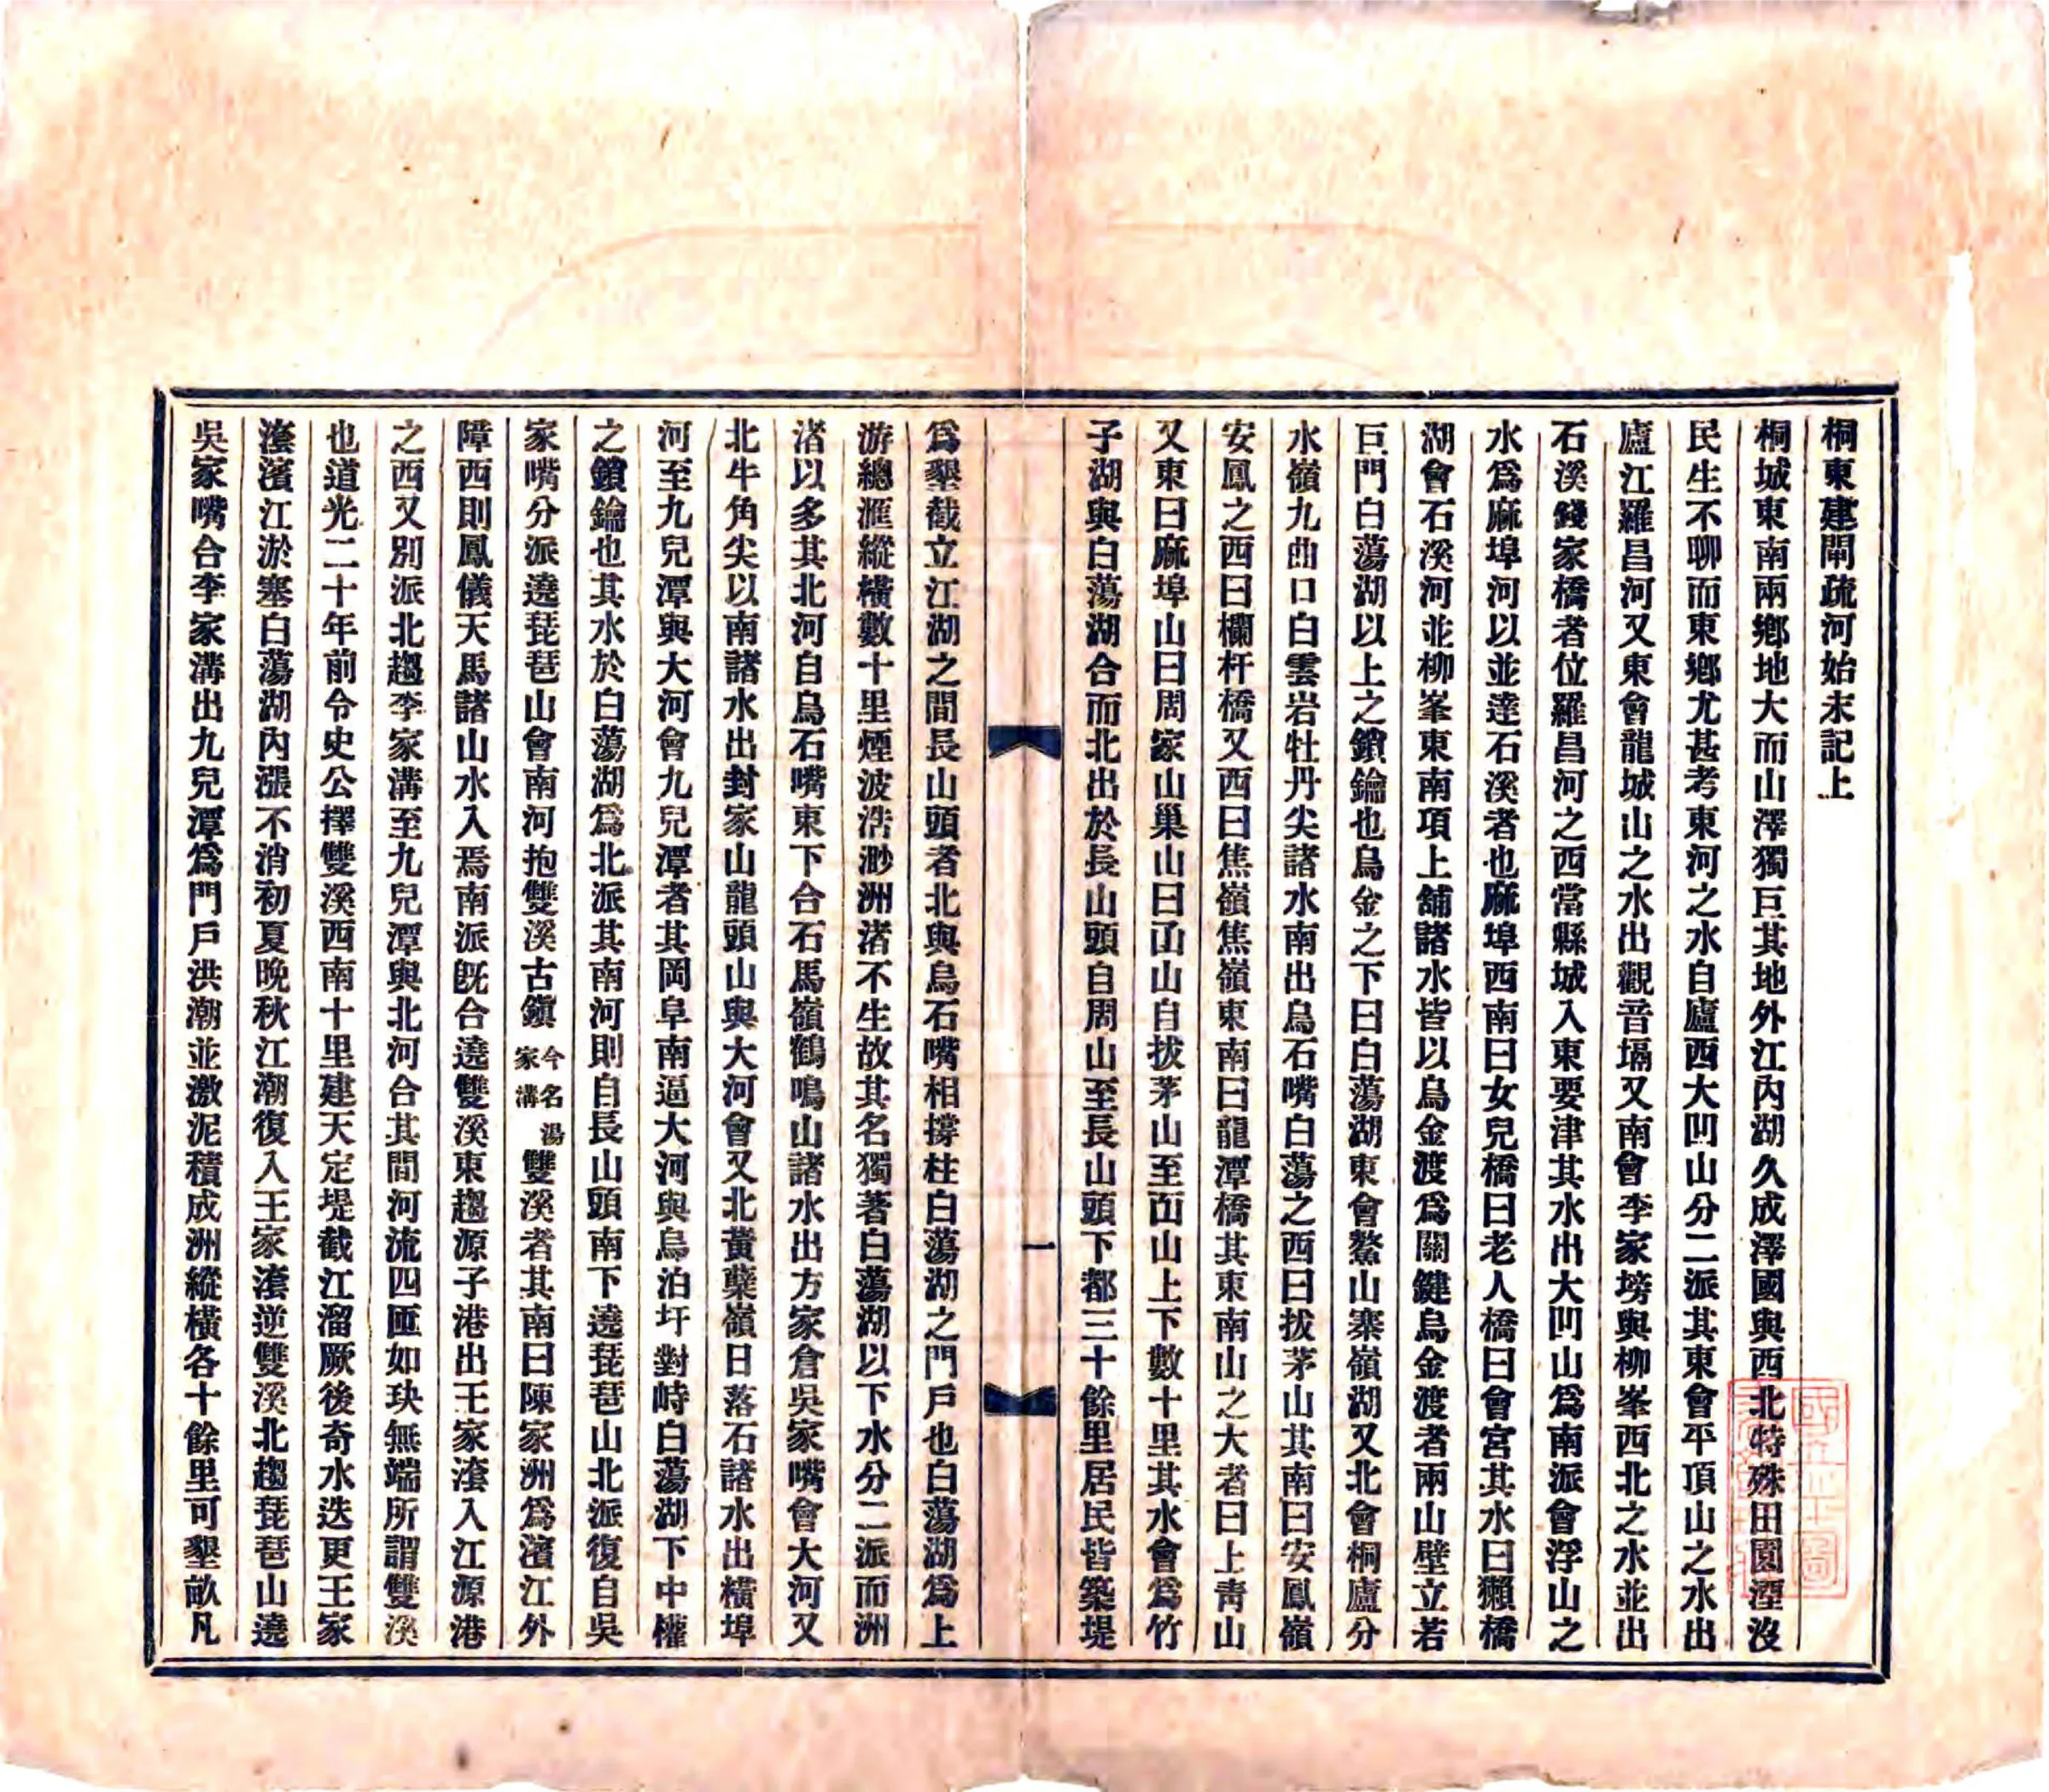 桐東建閘疏河始末記上
桐城東南兩鄉地大而山澤獨巨其地外江內湖久成澤國與西北特殊田園湮沒
民生不聊而東鄉尤甚考東河之水自廬西大凹山分二派其東會平頂山之水出
廬江羅昌河又東會龍城山之水出觀音塥又南會李家塝與柳峯西北之水並出
石溪錢家橋者位羅昌河之西當縣城入東要津其水出大凹山爲南派會浮山之
水爲麻埠河以並達石溪者也麻埠西南曰女兒橋曰老人橋曰會宮其水曰獺橋
湖會石溪河並柳峯東南項上舖諸水皆以烏金渡爲關鍵烏金渡者兩山壁立若
巨門白蕩湖以上之鎖鑰也烏金之下曰白蕩湖東會鰲山寨嶺湖又北會桐廬分
水嶺九曲口白雲岩牡丹尖諸水南出烏石嘴白蕩之西曰拔茅山其南曰安鳳嶺
安鳳之西曰欄杆橋又西曰焦嶺焦嶺東南曰龍潭橋其東南山之大者曰上靑山
又東曰麻埠山曰周家山巢山曰凾山自拔茅山至凾山上下數十里其水會爲竹
子湖與白蕩湖合而北出於長山頭自周山至長山頭下都三十餘里居民皆築堤
爲墾截立江湖之間長山頭者北與烏石嘴相撐柱白蕩湖之門戶也白蕩湖爲上
游總滙縱橫數十里煙波浩渺洲渚不生故其名獨著白蕩湖以下水分二派而洲
渚以多其北河自烏石嘴東下合石馬嶺鶴鳴山諸水出方家倉吳家嘴會大河又
北牛角尖以南諸水出封家山龍頭山與大河會又北黃蘗嶺日落石諸水出橫埠
河至九兒潭與大河會九兒潭者其岡阜南逼大河與烏泊圩對峙白蕩湖下中權
之鎖鑰也其水於白蕩湖爲北派其南河則自長山頭南下遶琵琶山北派復自吳
家嘴分派遶琵琶山會南河抱雙溪古鎭今名湯家溝雙溪者其南曰陳家洲爲濱江外
障西則鳳儀天馬諸山水入焉南派旣合遶雙溪東趨源子港出王家滾入江源港
之西又別派北趨李家溝至九兒潭與北河合其間河流四匝如玦無端所謂雙溪
也道光二十年前令史公擇雙溪西南十里建天定堤截江溜厥後奇水迭更王家
滾濱江淤塞白蕩湖內漲不消初夏晚秋江潮復入王家滾逆雙溪北趨琵琶山遶
吳家嘴合李家溝出九兒潭爲門戶洪潮並激泥積成洲縱橫各十餘里可墾畝凡
一